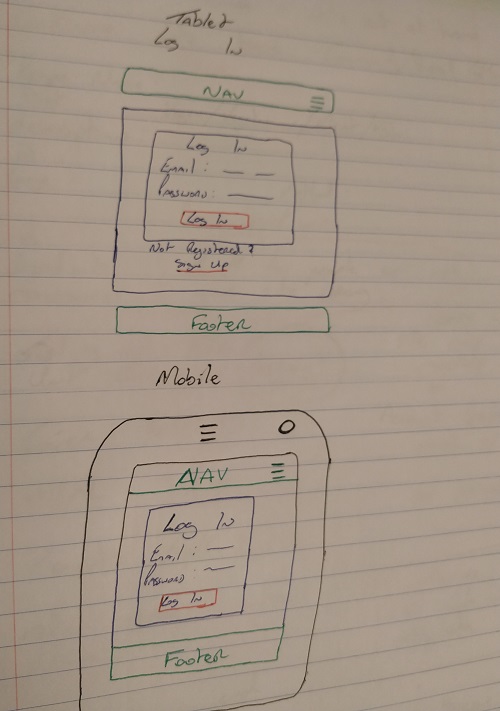 Tablet
Log In
NAV
Log In
Email:
Password:
Log In
Not Registered?
Sign Up
Footer
Mobile
NAV
Log In
Email:
Password
Log In
Footer